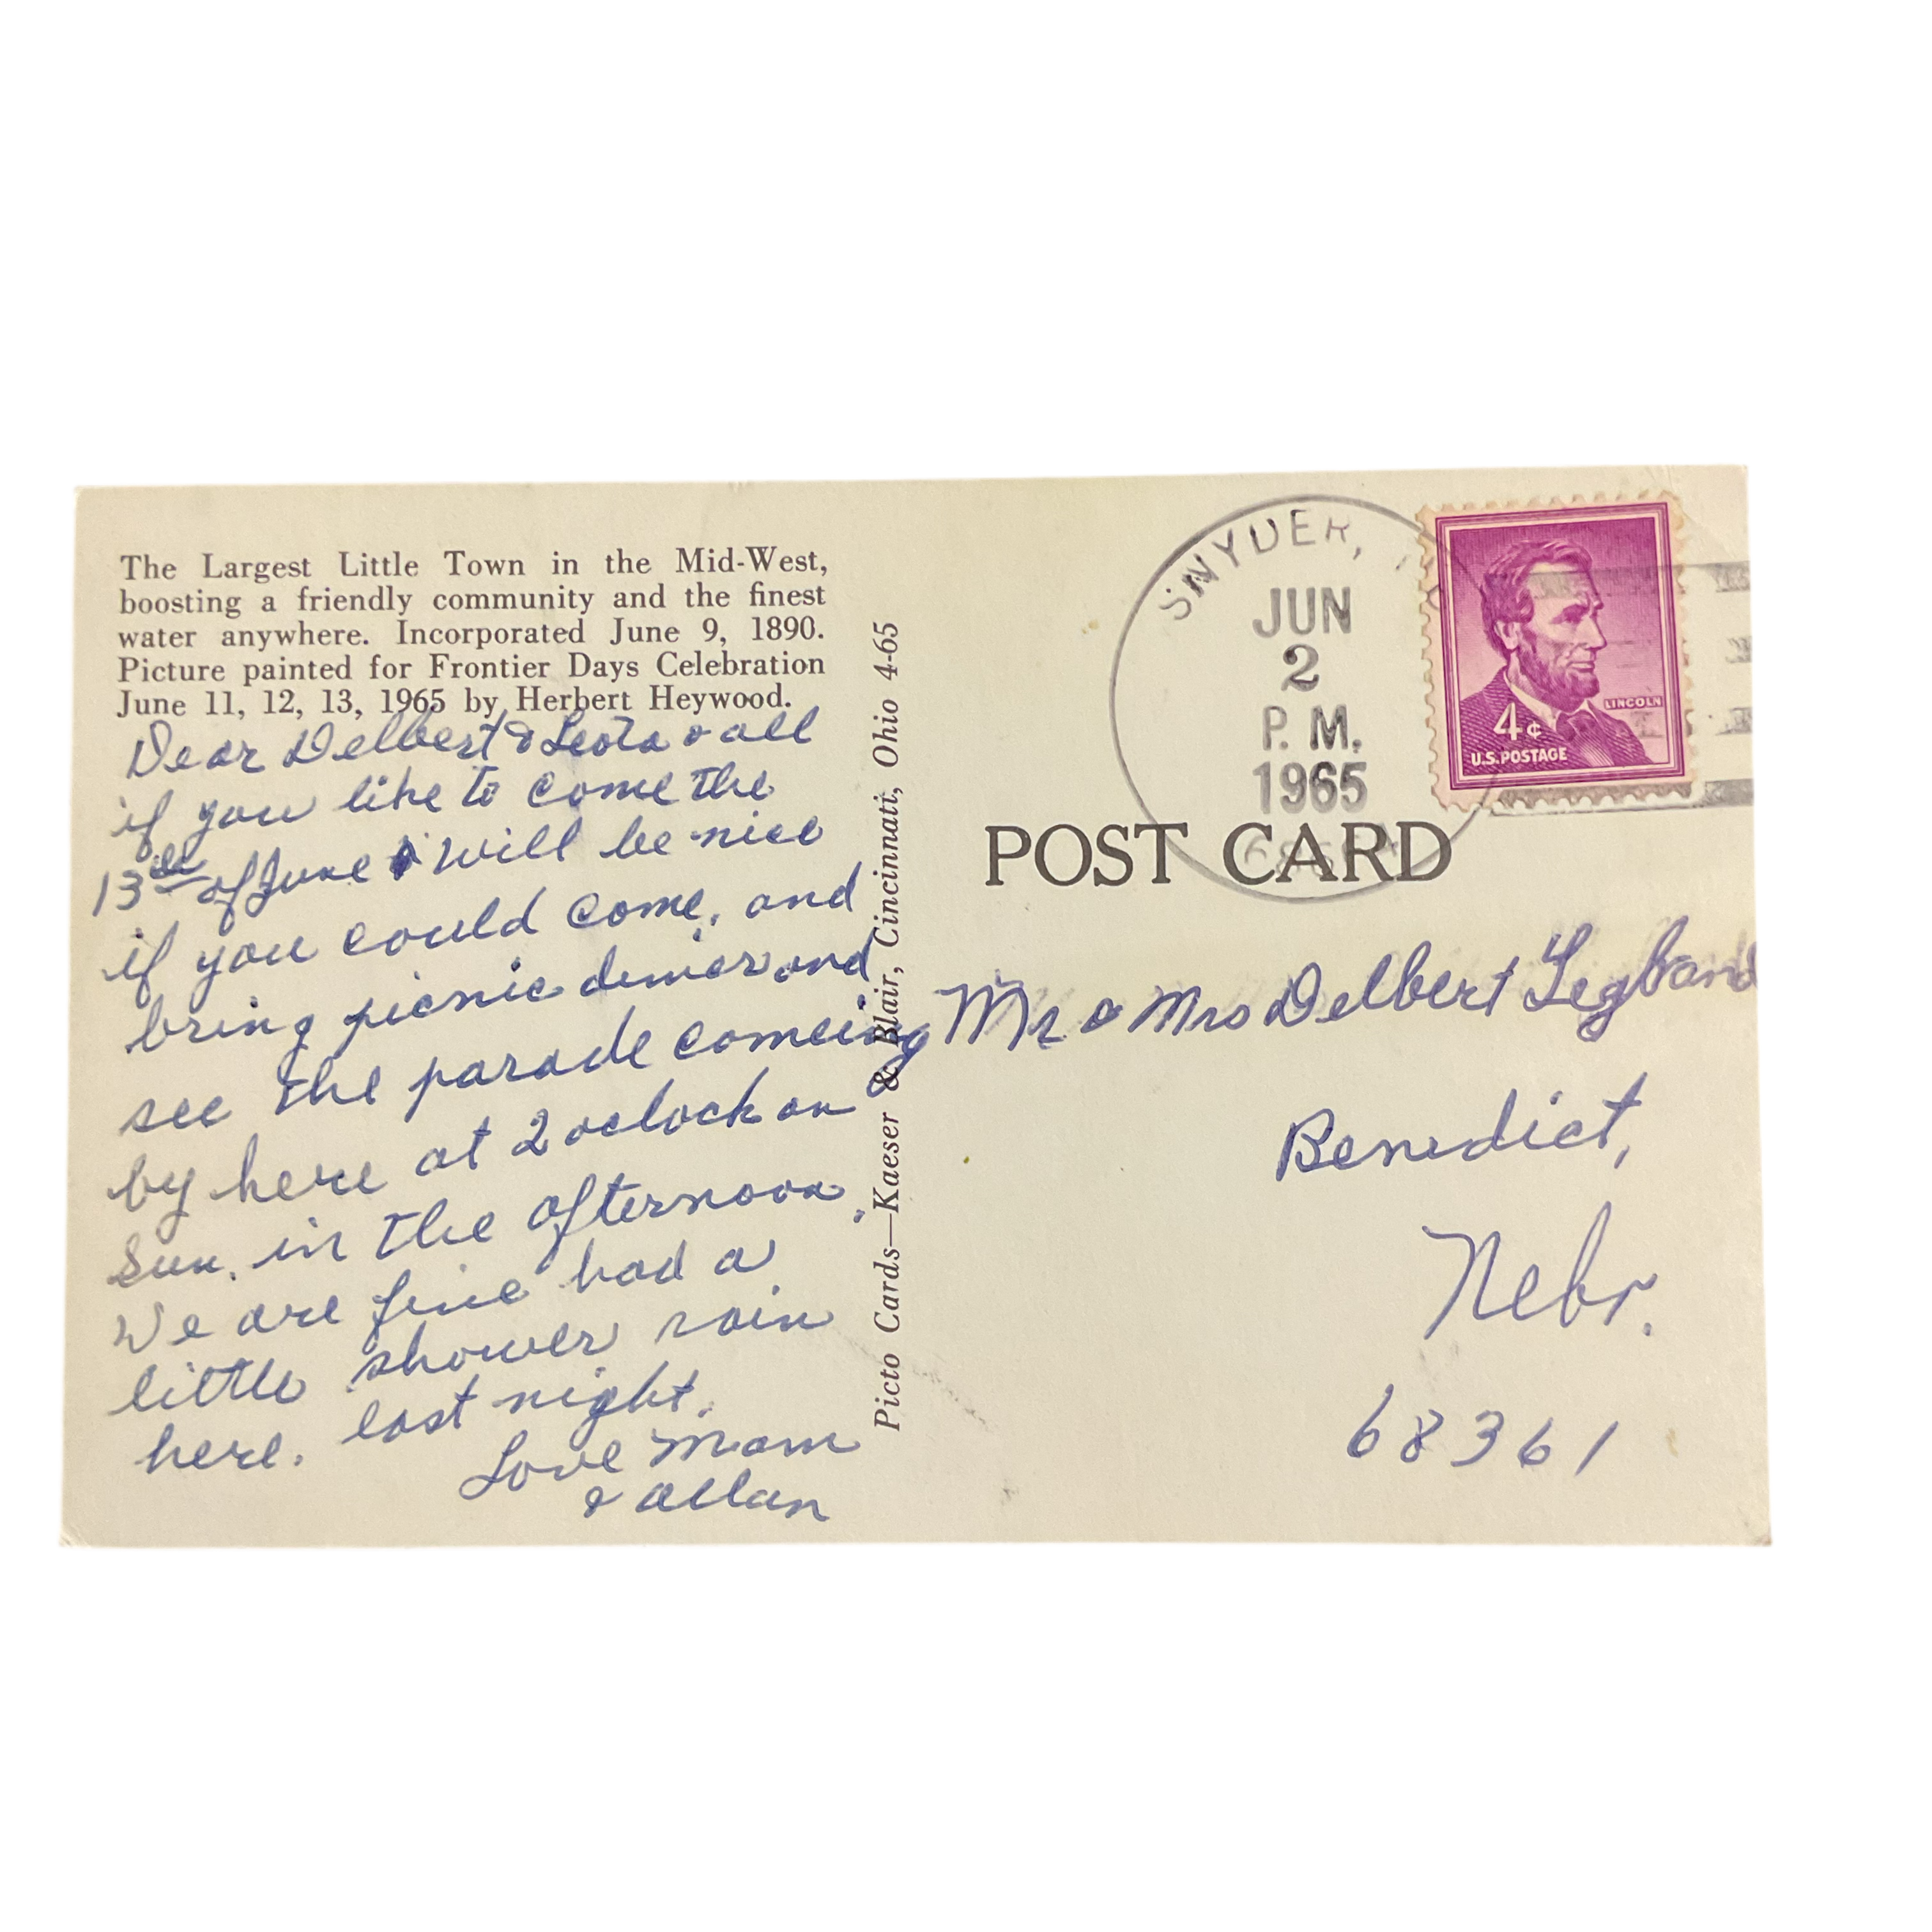 The Largest Little Town in the Mid-West,
boosting a friendly community and the finest
water anywhere. Incorporated June 9, 1890.
Picture painted for Frontier Days Celebration
June 11, 12, 13, 1965 by Herbert Heywood.
Dear Delbert & Leota & all
if you like to come the
13th of June will be nice
if you could come, and
bring picnic dinier and
see the parade comeing
by here at 2 oclock on
Sun. in the afternoon.
We are fine had a
little shower rain
here. last night.
Love Mom
& allan
Picto Cards—Kaeser & Blair, Cincinnati, Ohio 4-65
SNYDER,
JUN
2
P. M.
1965
LINCOLN
4¢
U.S. POSTAGE
POST CARD
Mr & Mrs Delbert Legband
Benedict,
Nebr.
68361